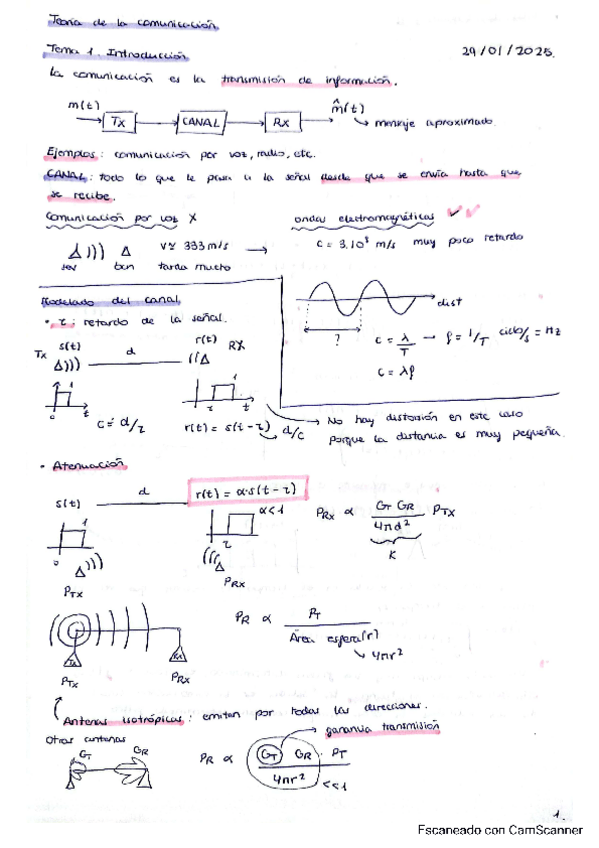 Teoría de la comunicación
Tema 1. Introducción
29/01/2025.
La comunicación es la transmisión de información.
m(t) → TX → CANAL → RX → m̂(t)
↳ mensaje aproximado
Ejemplos: comunicación por voz, radio, etc.
CANAL: todo lo que le pasa a la señal desde que se envía hasta que
se recibe.
Comunicación por voz X
ondas electromagnéticas ✓✓
v≃ 333 m/s →
c = 3.10⁸ m/s muy poco retardo
tarda mucho
dist
?
Modelado del canal
• τ: retardo de la señal.
c = λ/T → f = 1/T ciclo/s = Hz
c = λf
Tx s(t) d r(t) RX
0 t
1
τ t
c = d/τ
r(t) = s(t - τ) d/c
→ No hay distorsión en este caso
porque la distancia es muy pequeña.
• Atenuación
s(t) d r(t) = α·s(t - τ)
1
0
α<1
τ
PRX ∝ GT GR / 4πd² PTX
K
PTX
PRX
PR ∝ PT / Área esfera(r)
↳ 4πr²
PTX
PRX
Antenas isotrópicas: emiten por todas las direcciones.
Otras antenas
→ ganancia transmisión
GT GR
PR ∝ GT GR · PT / 4πr²
<<1
1.
Escaneado con CamScanner